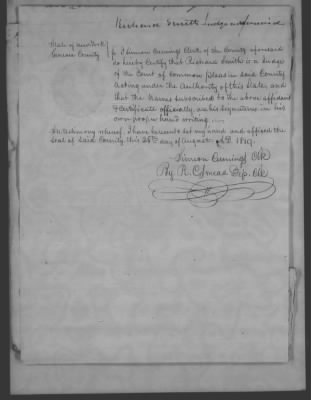 Richard Smith Judge as aforesaid
State of New York
County } ss I Simeon Cummings Clerk of the County aforesaid
do hereby Certify that Richard Smith is a Judge
of the Court of Common Pleas in said County
Acting under the Authority of this State and
that the Names subscribed to the above affidavit
& Certificate officially, are his signatures in his
own proper hand writing
In testimony whereof I have hereunto set my name and affixed the
seal of Said County, this 25th day of August AD. 1819.
Simeon Cummings Clk
By R. C. Smead Dep. Clk